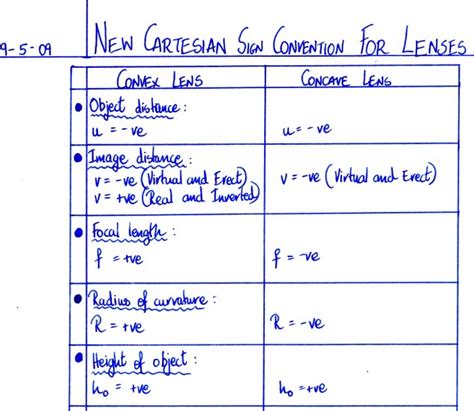 9-5-09
NEW CARTESIAN SIGN CONVENTION FOR LENSES
CONVEX LENS
CONCAVE LENS
Object distance :
u = -ve
u = -ve
Image distance :
v = -ve (Virtual and Erect)
v = +ve (Real and Inverted)
v = -ve (Virtual and Erect)
Focal length :
f = +ve
f = -ve
Radius of curvature :
R = +ve
R = -ve
Height of object :
ho = +ve
ho = +ve